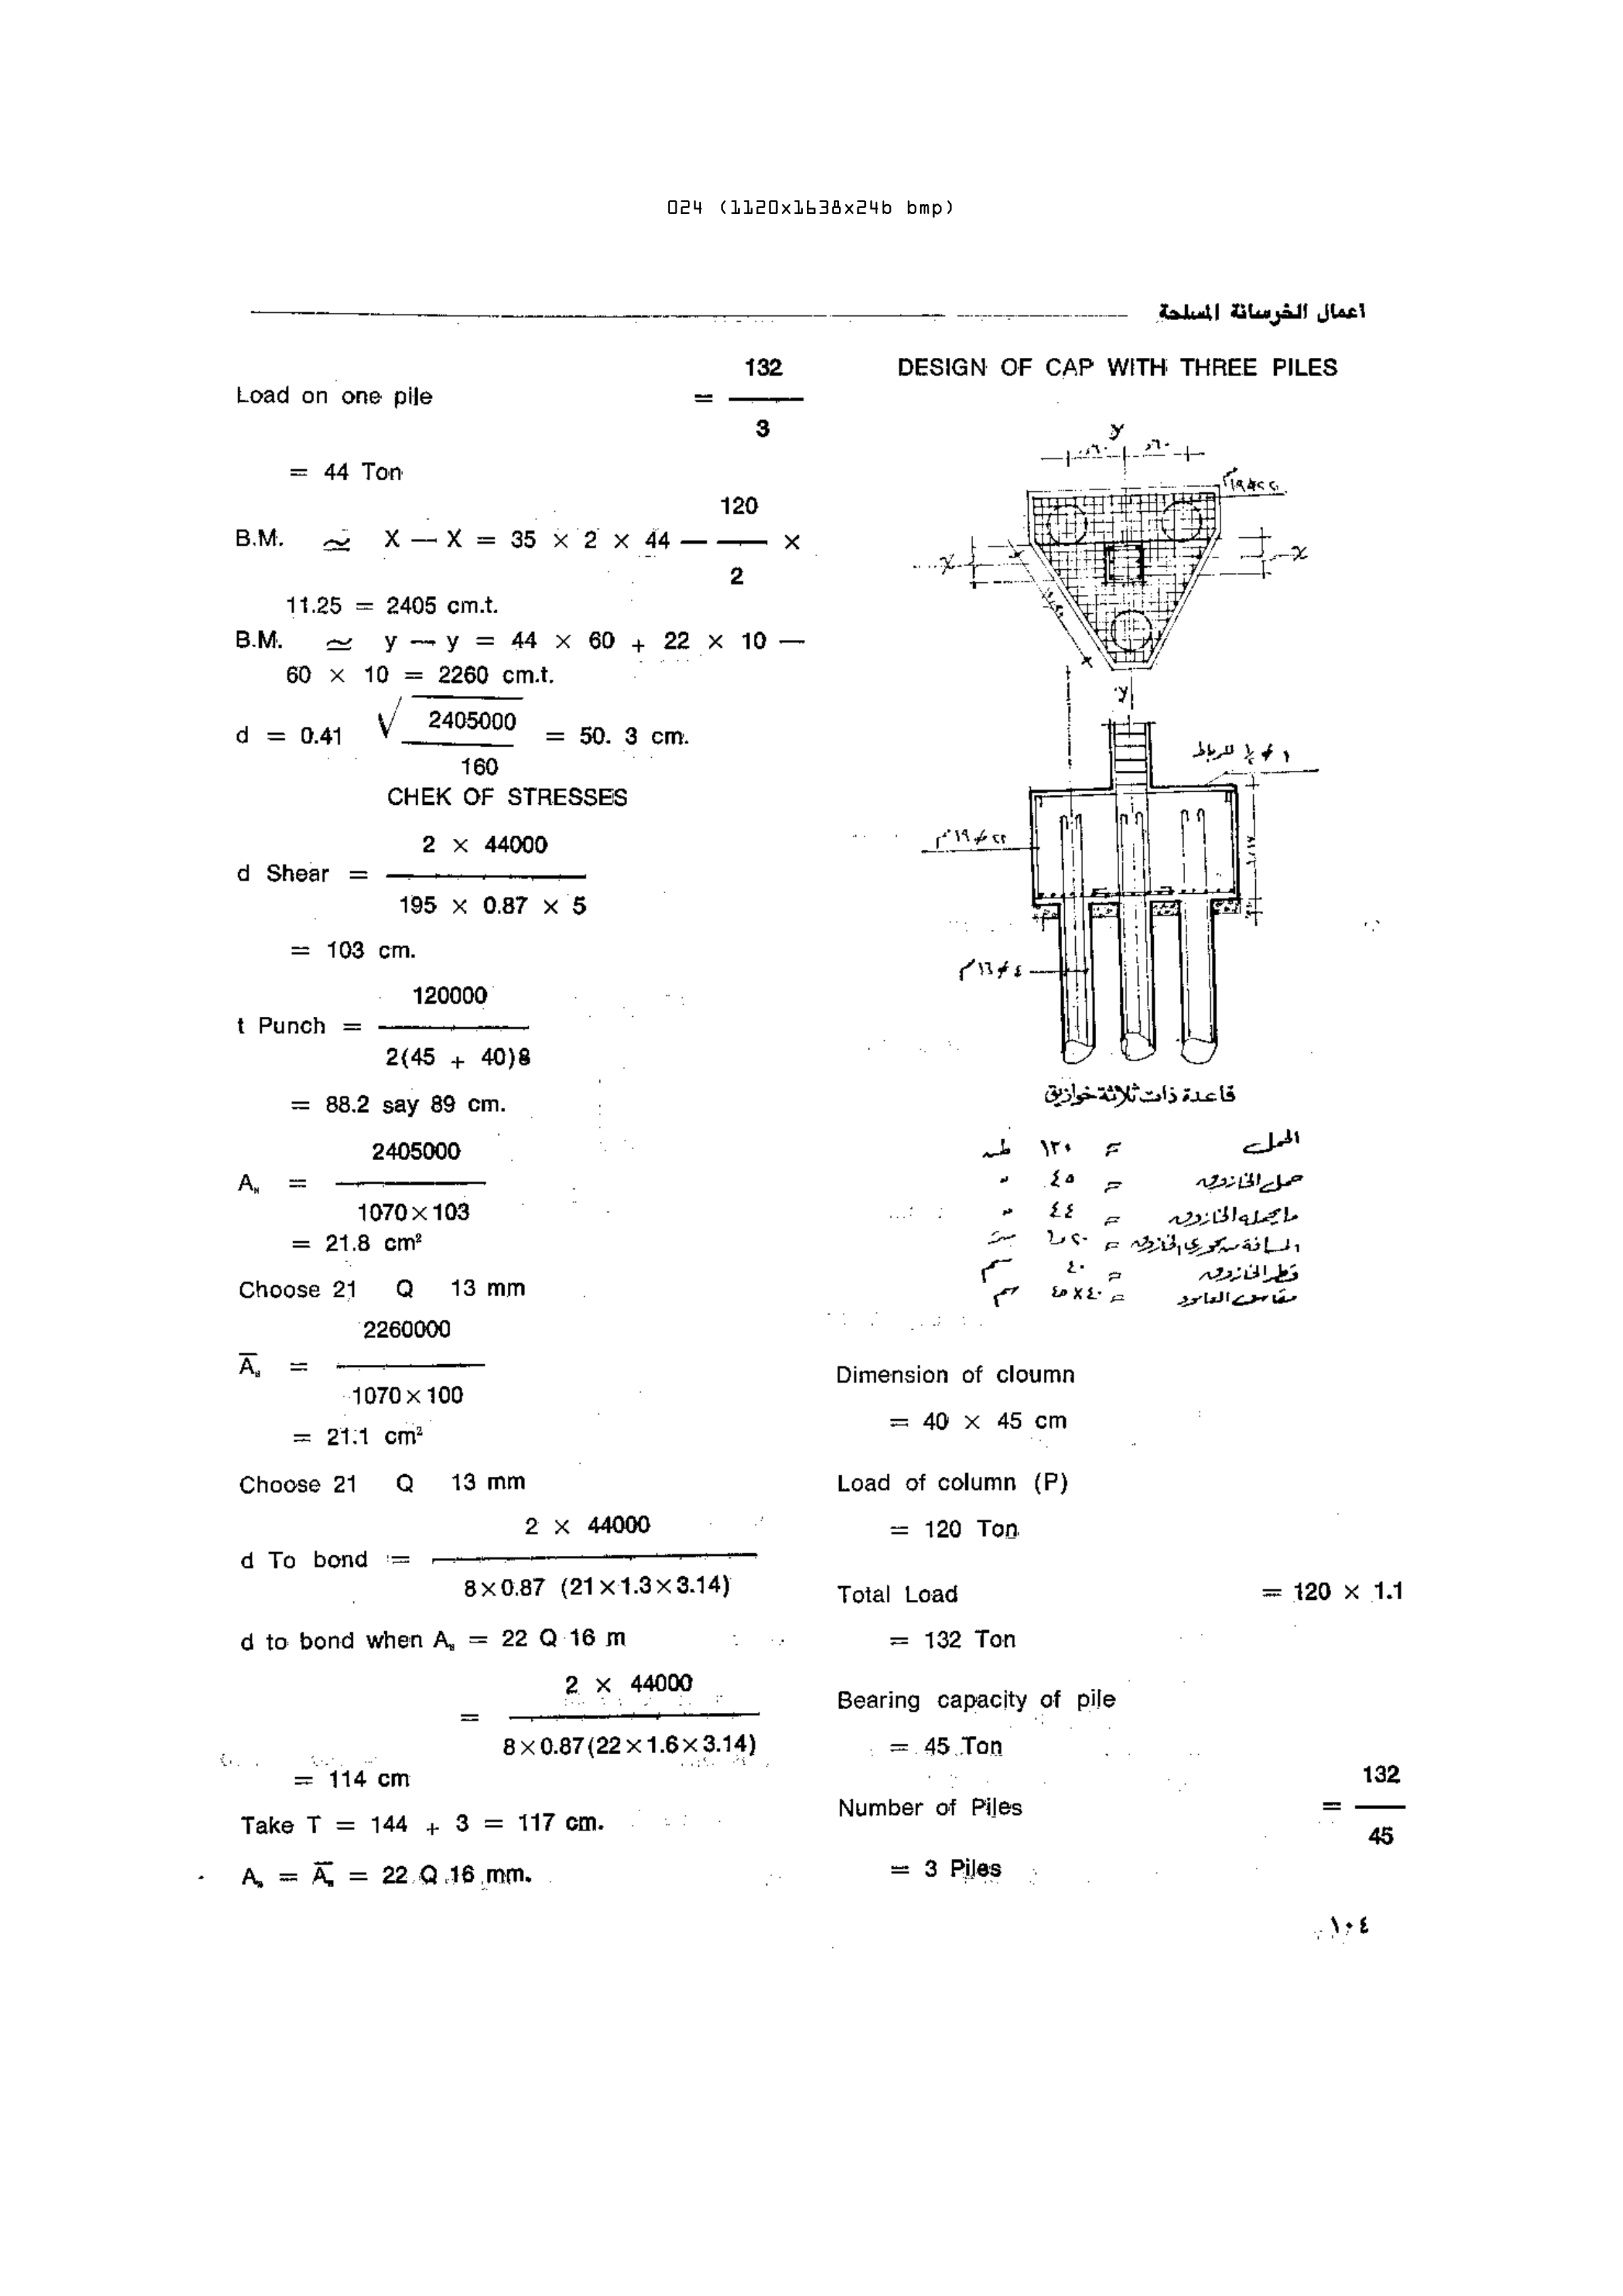 024 (1120x1638x24b bmp)
اعمال الخرسانة المسلحة
DESIGN OF CAP WITH THREE PILES
y
x
x
y
قاعدة ذات ثلاثة خوازيق
الحمل = ١٢٠ طن
حمل الخازوق = ٤٥ "
ما يحمله الخازوق = ٤٤ "
قطر الخازوق = ٤٠ سم
مقاس العامود = ٤٠ x ٤٥ سم
Dimension of cloumn
= 40 × 45 cm
Load of column (P)
= 120 Ton
Total Load = 120 × 1.1
= 132 Ton
Bearing capacity of pile
= 45 Ton
132
Number of Piles = ———
45
= 3 Piles
132
Load on one pile = ———
3
= 44 Ton
120
B.M. ≃ X — X = 35 × 2 × 44 — ——— ×
2
11.25 = 2405 cm.t.
B.M. ≃ y — y = 44 × 60 + 22 × 10 —
60 × 10 = 2260 cm.t.
2405000
d = 0.41 √ ——— = 50. 3 cm.
160
CHEK OF STRESSES
2 × 44000
d Shear = ———
195 × 0.87 × 5
= 103 cm.
120000
t Punch = ———
2(45 + 40)8
= 88.2 say 89 cm.
2405000
As = ———
1070×103
= 21.8 cm²
Choose 21 Q 13 mm
2260000
A̅s = ———
1070×100
= 21.1 cm²
Choose 21 Q 13 mm
2 × 44000
d To bond = ———
8×0.87 (21×1.3×3.14)
d to bond when As = 22 Q 16 m
2 × 44000
= ———
8×0.87(22×1.6×3.14)
= 114 cm
Take T = 144 + 3 = 117 cm.
As = A̅s = 22 Q 16 mm.
١٠٤